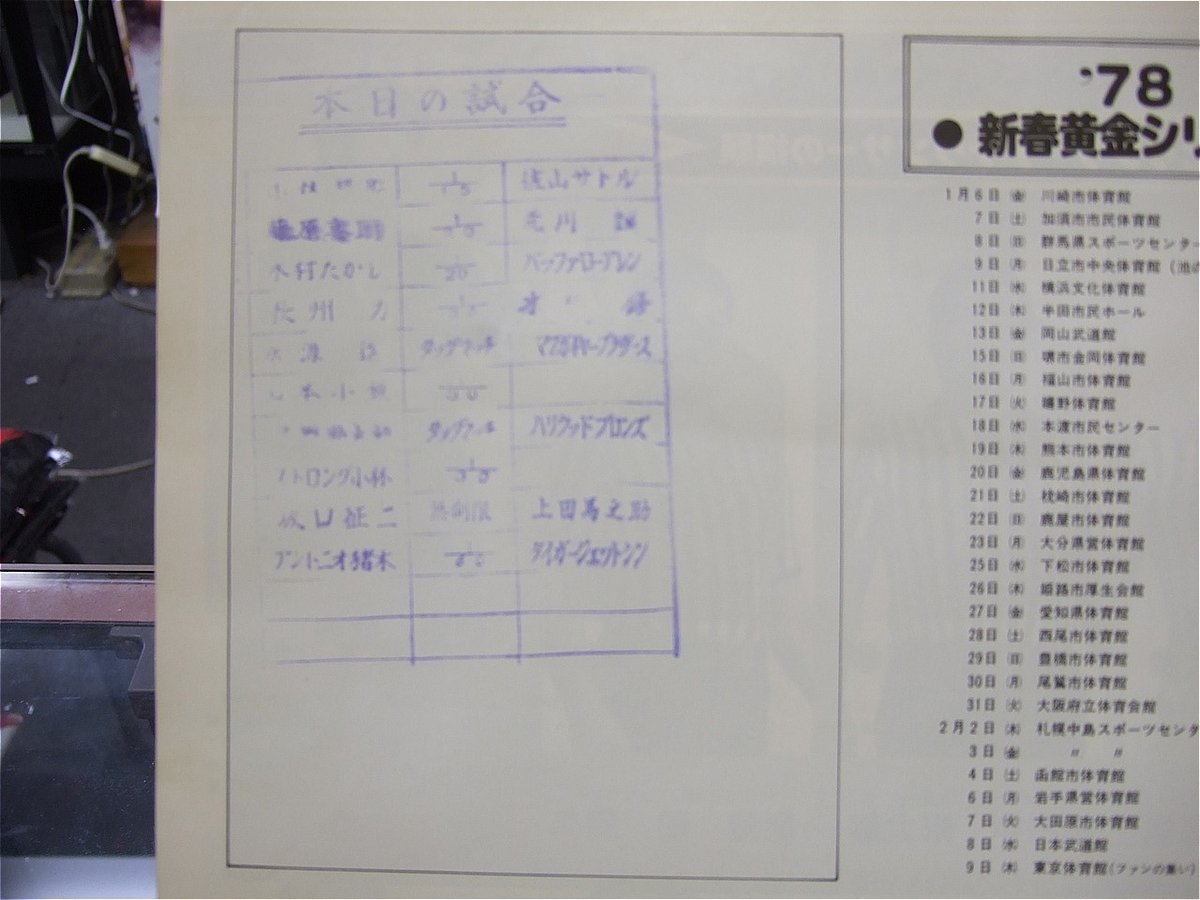 本日の試合
佐山サトル
藤原喜明 荒川 誠
木村たかし バッファローアレン
長州 力
タッグマッチ マクガイヤーブラザース
山本小鉄
タッグマッチ ハリウッドブロンズ
ストロング小林
坂口征二 無制限 上田馬之助
アントニオ猪木 タイガージェットシン
'78
● 新春黄金シリ
1月6日 ㈮ 川崎市体育館
7日 ㈯ 加須市市民体育館
8日 ㈰ 群馬県スポーツセンター
9日 ㈪ 日立市中央体育館(池の
11日 ㈬ 横浜文化体育館
12日 ㈭ 半田市民ホール
13日 ㈮ 岡山武道館
15日 ㈰ 堺市金岡体育館
16日 ㈪ 福山市体育館
17日 ㈫ 嬉野体育館
18日 ㈬ 本渡市民センター
19日 ㈭ 熊本市体育館
20日 ㈮ 鹿児島県体育館
21日 ㈯ 枕崎市体育館
22日 ㈰ 鹿屋市体育館
23日 ㈪ 大分県営体育館
25日 ㈬ 下松市体育館
26日 ㈭ 姫路市厚生会館
27日 ㈮ 愛知県体育館
28日 ㈯ 西尾市体育館
29日 ㈰ 豊橋市体育館
30日 ㈪ 尾鷲市体育館
31日 ㈫ 大阪府立体育会館
2月2日 ㈭ 札幌中島スポーツセンタ
3日 ㈮ 〃 〃
4日 ㈯ 函館市体育館
6日 ㈪ 岩手県営体育館
7日 ㈫ 大田原市体育館
8日 ㈬ 日本武道館
9日 ㈭ 東京体育館(ファンの集い)